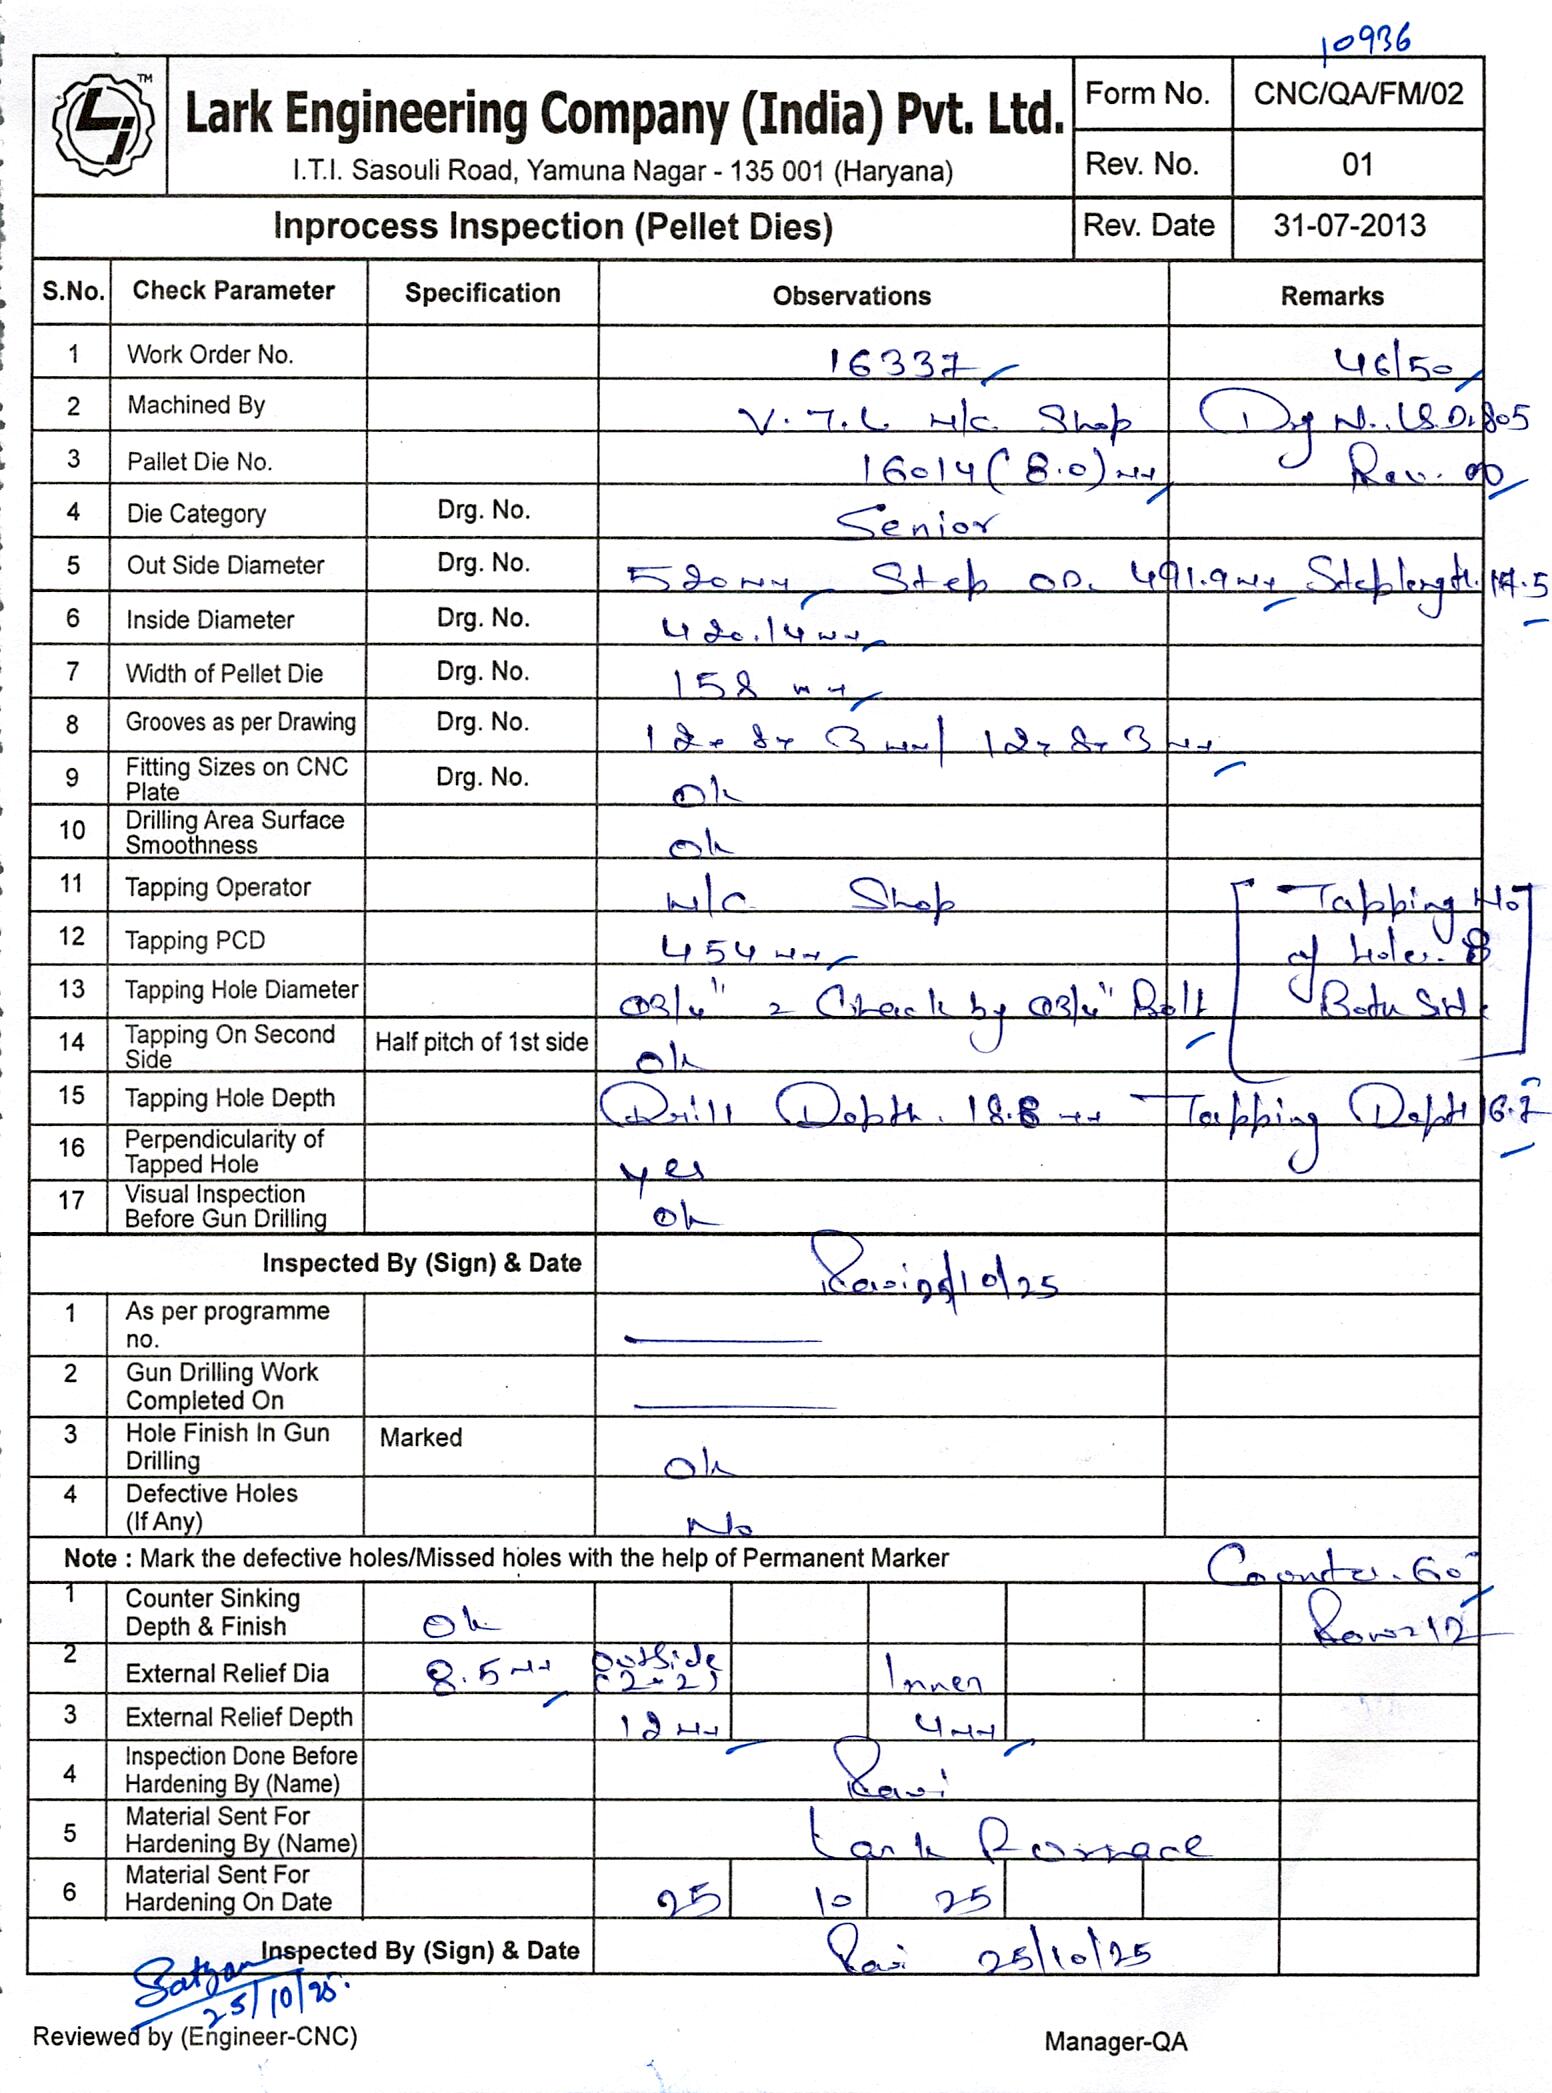 10936
TM
Lark Engineering Company (India) Pvt. Ltd.
I.T.I. Sasouli Road, Yamuna Nagar - 135 001 (Haryana)
Form No. CNC/QA/FM/02
Rev. No. 01
Inprocess Inspection (Pellet Dies) Rev. Date 31-07-2013
S.No. Check Parameter Specification Observations Remarks
1 Work Order No. 16337 46/50
2 Machined By V.T.L M/C Shop Drg No.
3 Pallet Die No. 16014 (8.0) mm Rev. 00
4 Die Category Drg. No. Senior
5 Out Side Diameter Drg. No. 520 mm Step OD. 491.9 mm Step length.
6 Inside Diameter Drg. No. 420.14 mm
7 Width of Pellet Die Drg. No. 158 mm
8 Grooves as per Drawing Drg. No. 12x8x3 mm/12x8x3 mm
9 Fitting Sizes on CNC Plate Drg. No. Ok
10 Drilling Area Surface Smoothness Ok
11 Tapping Operator M/C Shop Tapping No
12 Tapping PCD 454 mm of holes. 8
13 Tapping Hole Diameter 03/4" = Check by 03/4" Bolt Both Side
14 Tapping On Second Side Half pitch of 1st side Ok
15 Tapping Hole Depth Drill Depth. mm Tapping Depth
16 Perpendicularity of Tapped Hole yes
17 Visual Inspection Before Gun Drilling Ok
Inspected By (Sign) & Date Ravi /10/25
1 As per programme no.
2 Gun Drilling Work Completed On
3 Hole Finish In Gun Drilling Marked Ok
4 Defective Holes (If Any) No
Note : Mark the defective holes/Missed holes with the help of Permanent Marker Counter. 60°
1 Counter Sinking Depth & Finish Ok Row=12
2 External Relief Dia 8.5 mm Outside (2x2) Inner
3 External Relief Depth 12 mm 4 mm
4 Inspection Done Before Hardening By (Name) Ravi
5 Material Sent For Hardening By (Name) Lark Furnace
6 Material Sent For Hardening On Date 25 10 25
Inspected By (Sign) & Date Ravi 25/10/25
Satyam
25/10/25.
Reviewed by (Engineer-CNC) Manager-QA